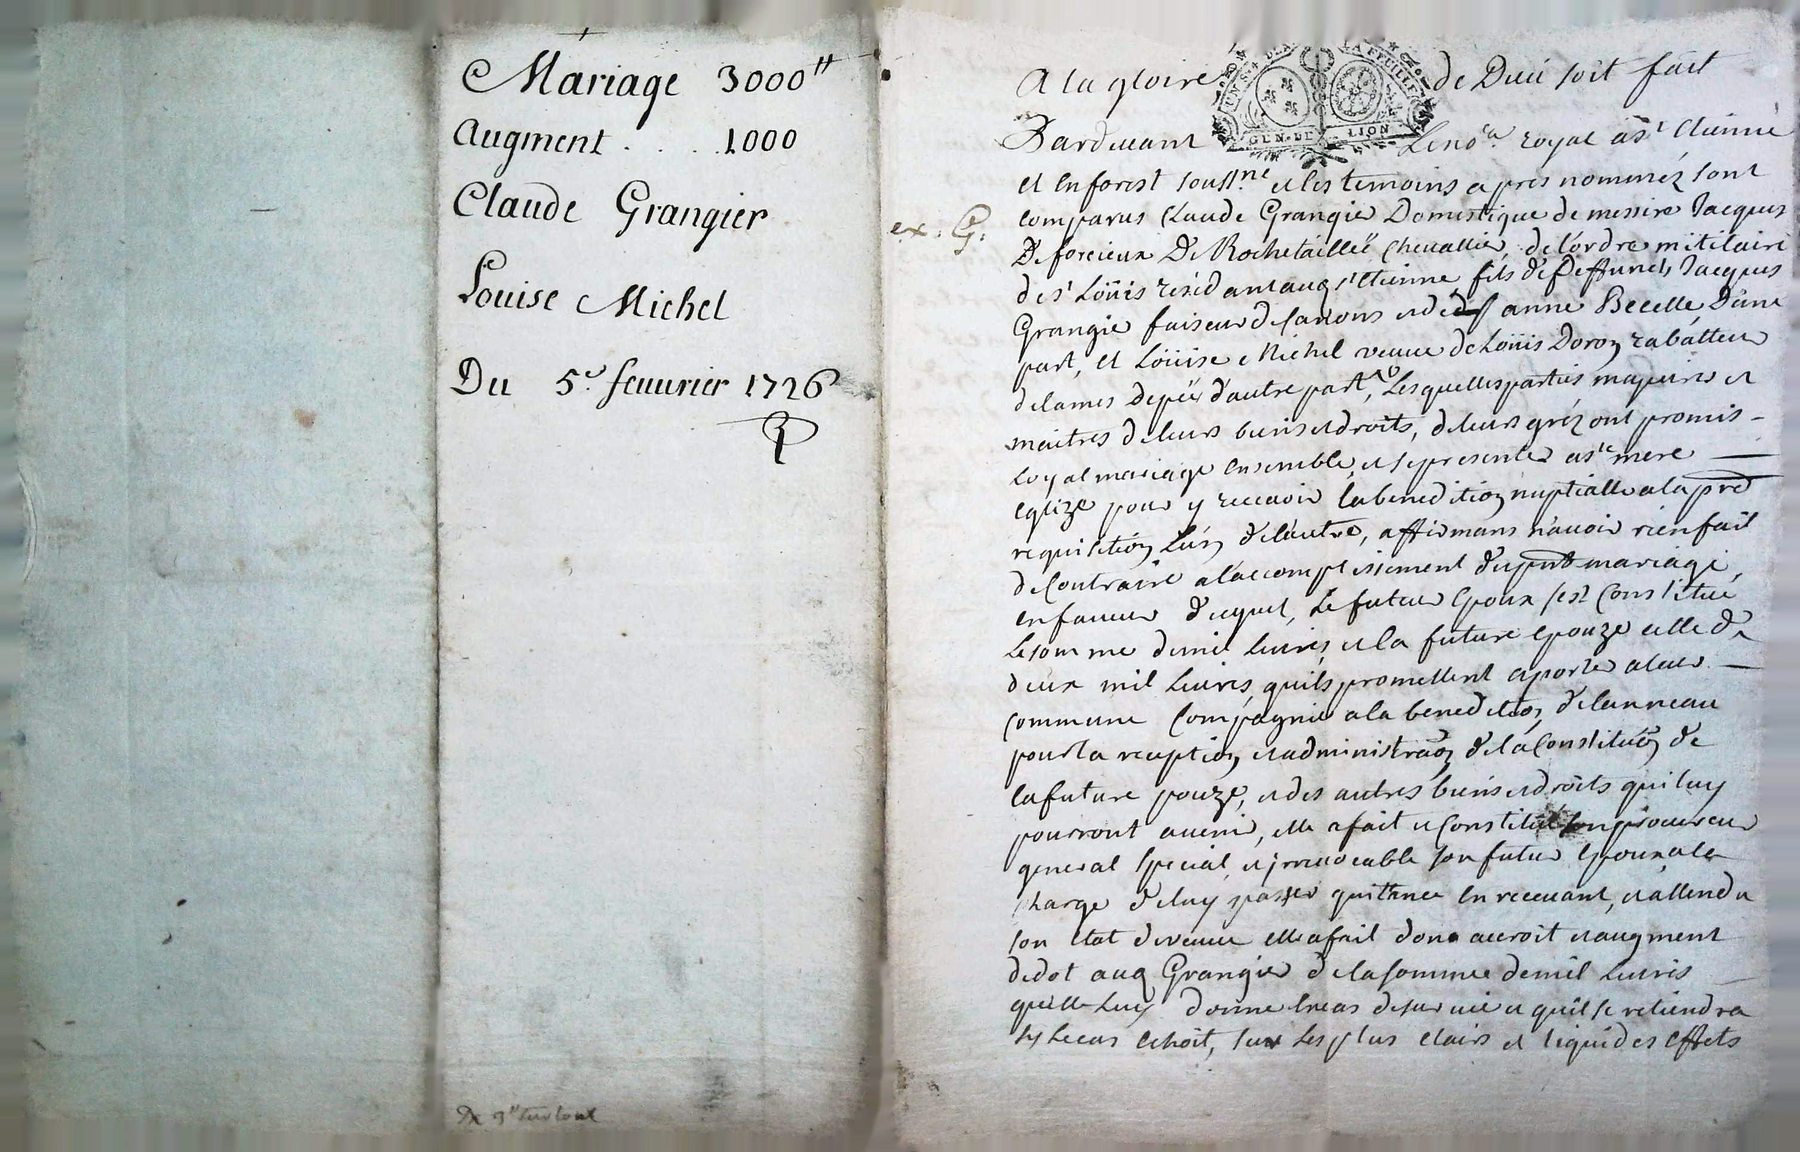 Mariage 3000ᵗᵗ
Augment . . . 1000
Claude Grangier
Louise Michel
Du 5ᵉ feuurier 1726
ex. G.
UN S. 4 DEN. LA FEUILLE
GEN. DE LION
A la gloire de Dieu soit fait
Pardeuant Le noʳᵉ royal a Sᵗ Etienne
et en forest soussⁿᵉ et les temoins apres nomméz sont
comparus Claude Grangier Domestique de messire Jacques
De forcieux De Rochetaillée cheuallier de l'ordre militaire
de sᵗ Loüis residant aud sᵗ Etienne fils de deffuncts Jacques
Grangier faiseur de canons et de anne Becelle D'une
part, et Loüise Michel veuue de Loüis Doron rabatteur
de lames depée d'autre part, Lesquelles parties majeures et
maitres de leurs biens et droits, de leurs gréz ont promis
loyal mariage ensemble, et se presenter a sᵗᵉ mere
eglize pour y receuoir la benediction nuptialle a la pre
requisition Lun de lautre, affirmans n'auoir rien fait
de Contraire a l'accomplissement du pnt mariage,
en faueur duquel, Le futeur Epoux sest Constitué
La somme de mil liures et la future epouze celle de
deux mil Liures, quils promettent aporter a leur
commune Compagnie a la benediction de lanneau
pour la reception et administraõn de la Constitutõn de
la future epouze, et des autres biens et droits qui luy
pourront auenir, elle a fait et Constitué son procureur
general special et irreuocable son futur Epoux a la
charge de luy passer quittance En receuant, et attendu
son Etat de veuue elle a fait don accroit et augment
de dot aud Grangier de la somme de mil Liures
quelle Luy donne En cas de suruie et quil se retiendra
sy le cas Echoit, sur Les plus clairs et liquides effets